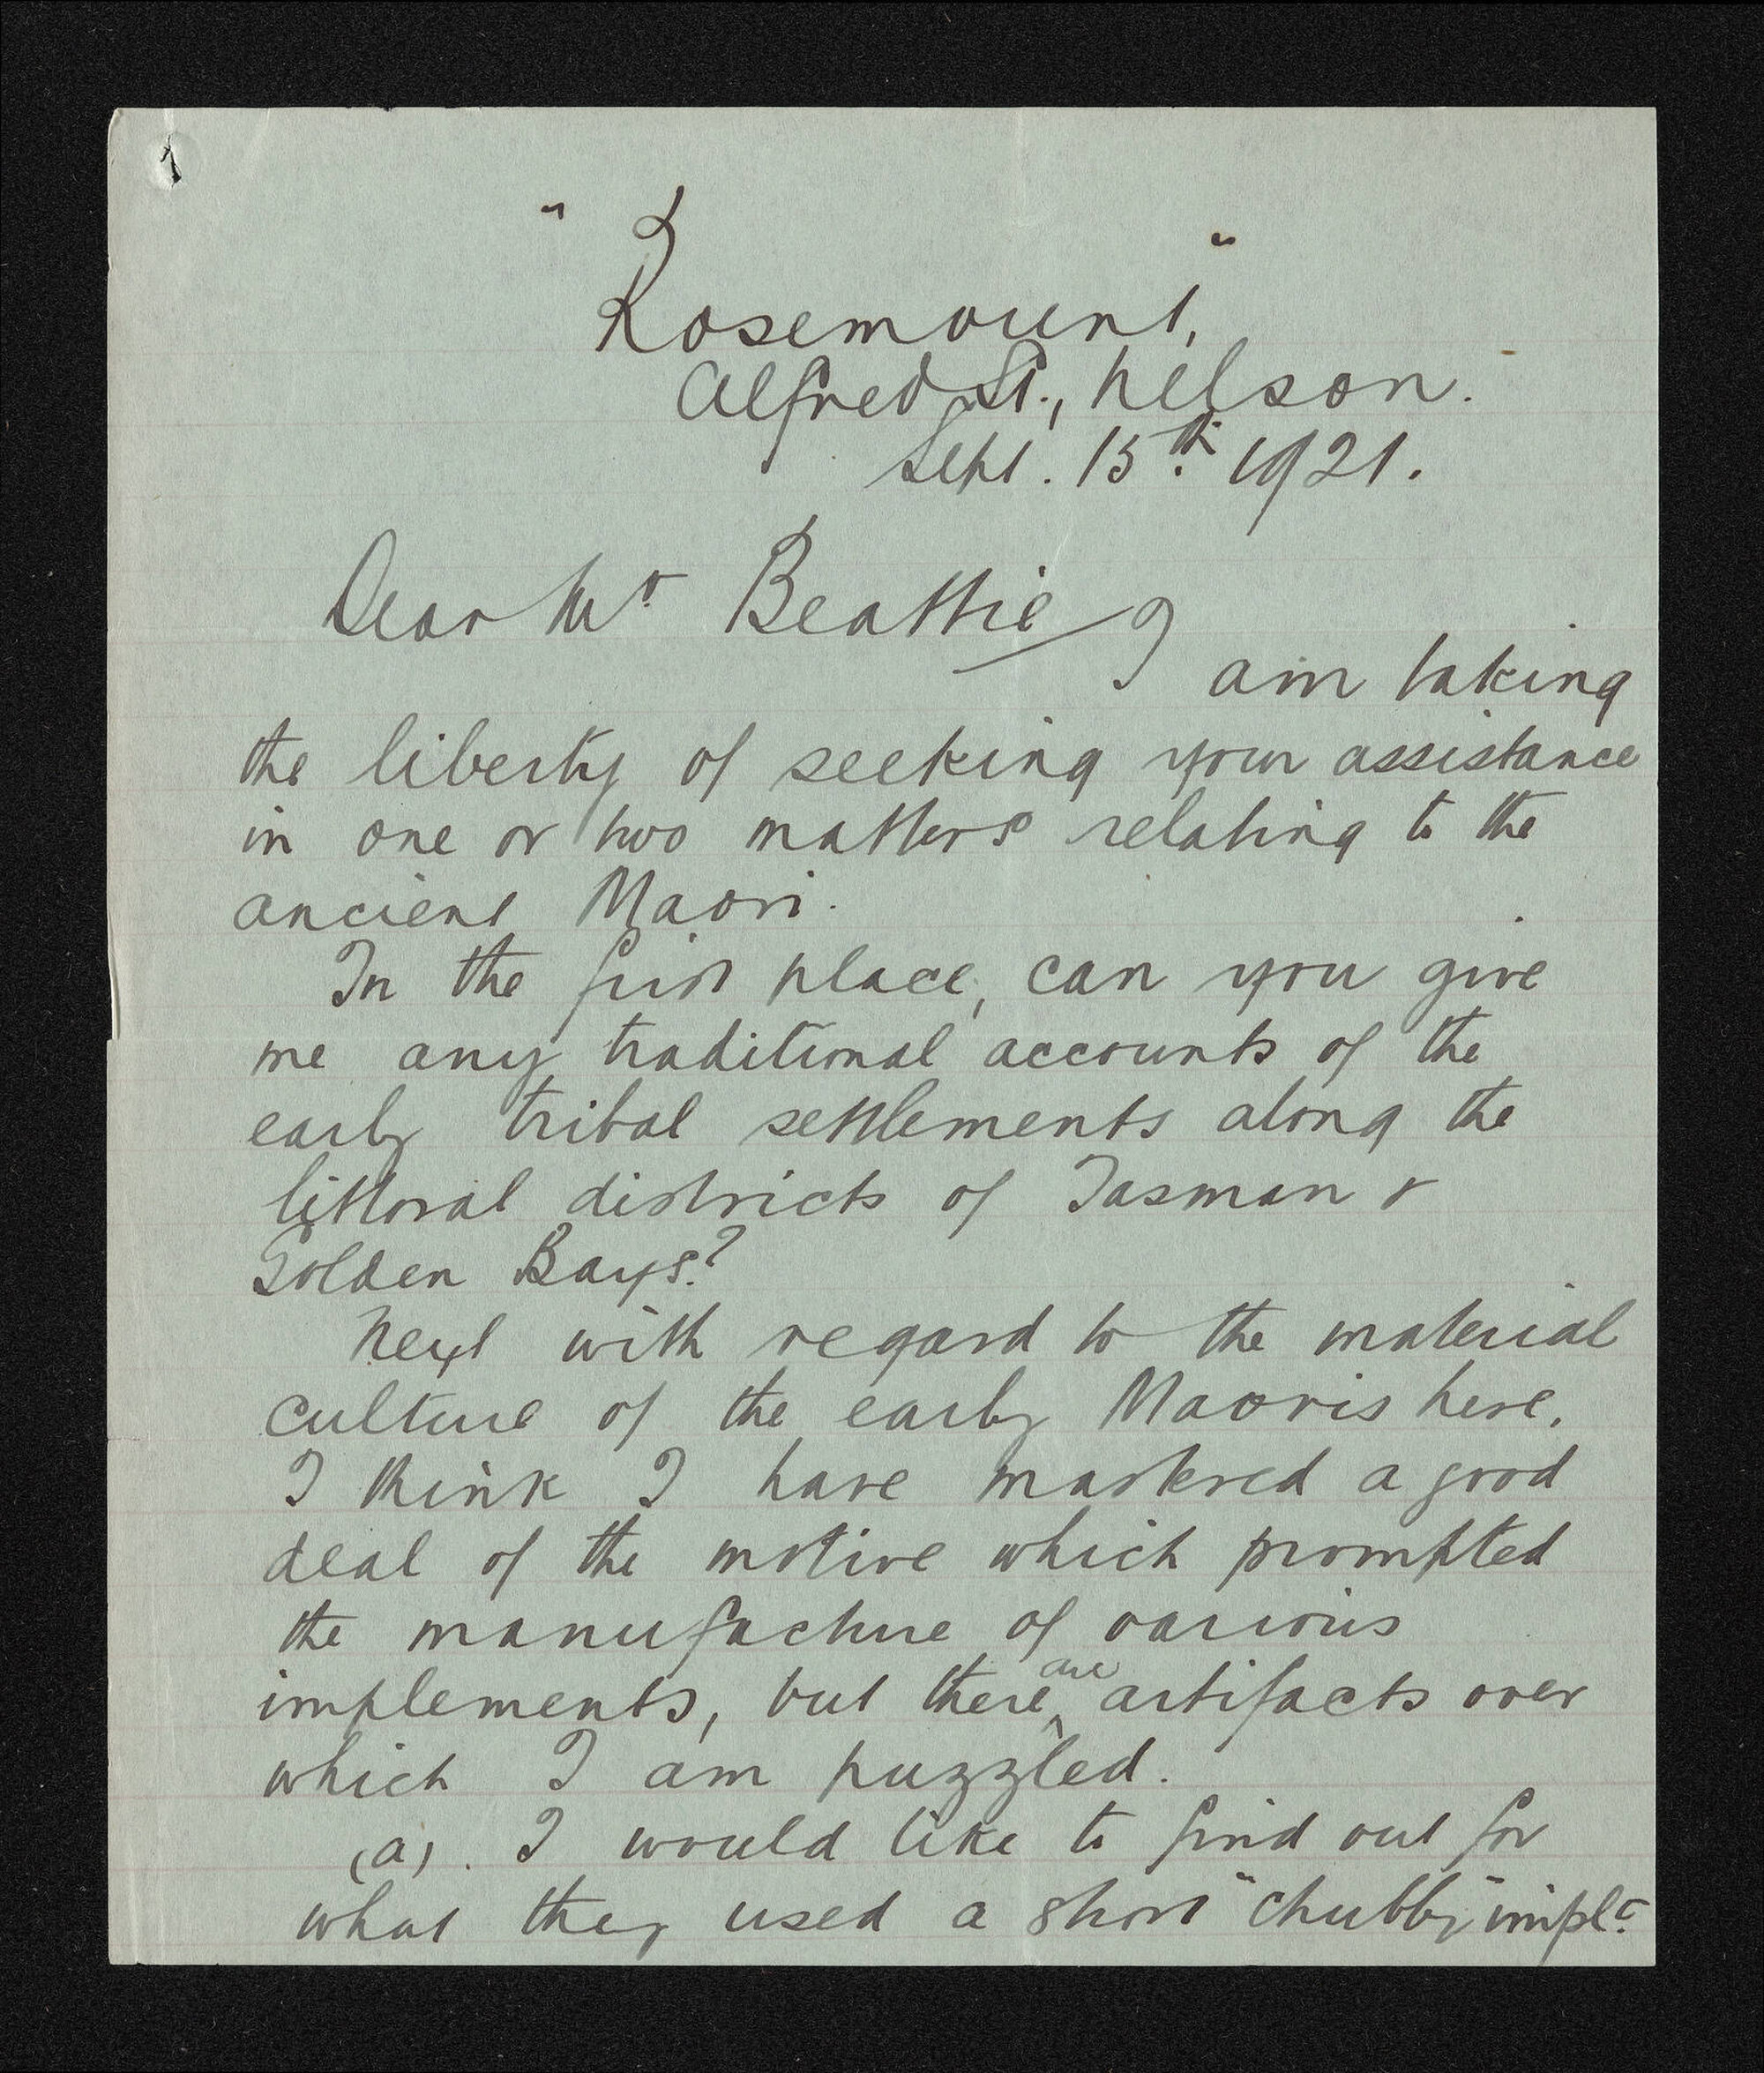 "Rosemount,"
Alfred St., Nelson.
Sept. 15th. 1921.
Dear Mr. Beattie I
am taking
the liberty of seeking your assistance
in one or two matters relating to the
ancient Maori.
In the first place, can you give
me any traditional accounts of the
early tribal settlements along the
littoral districts of Tasman &
Golden Bays?
Next with regard to the material
culture of the early Maoris here.
I think I have mastered a good
deal of the motive which prompted
the manufacture of various
implements, but there are artifacts over
which I am puzzled.
(a). I would like to find out for
what they used a short "chubby" implt.